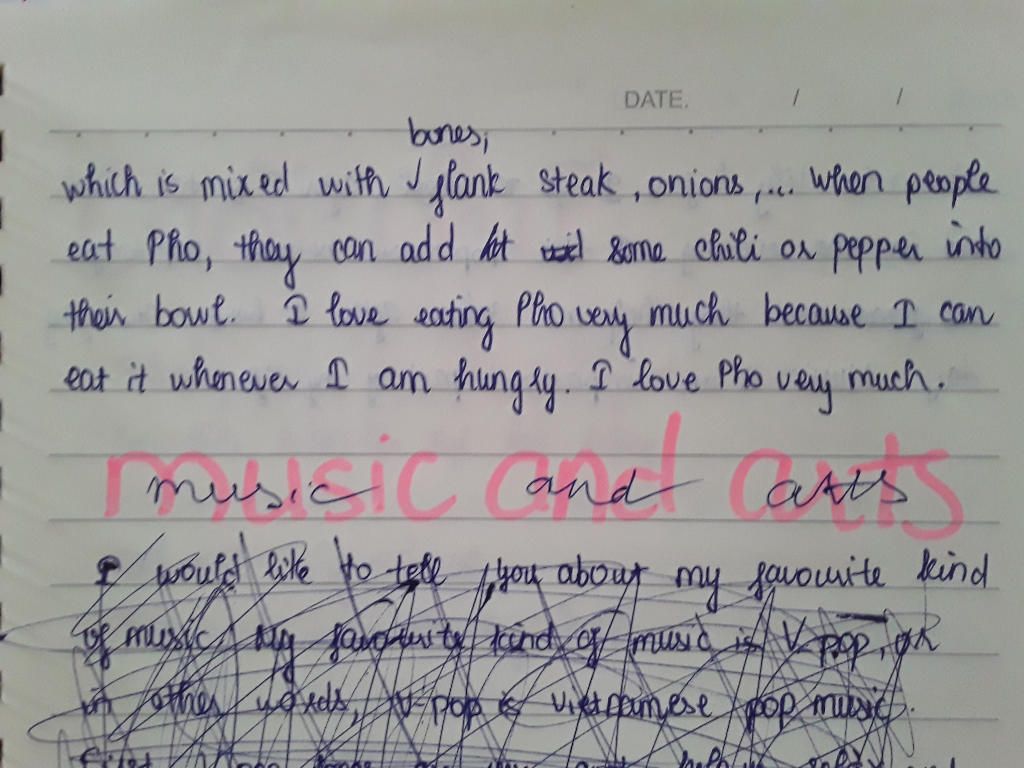 DATE. / /
bones,
which is mixed with ✓ flank steak, onions,... when people
eat Pho, they can add some chili or pepper into
their bowl. I love eating Pho very much because I can
eat it whenever I am hungly. I love Pho very much.
music and arts
music and arts
I would like to tell you about my favourite kind
of music. My favourite kind of music is V-pop, or
in other words, V-pop is vietnamese pop music.